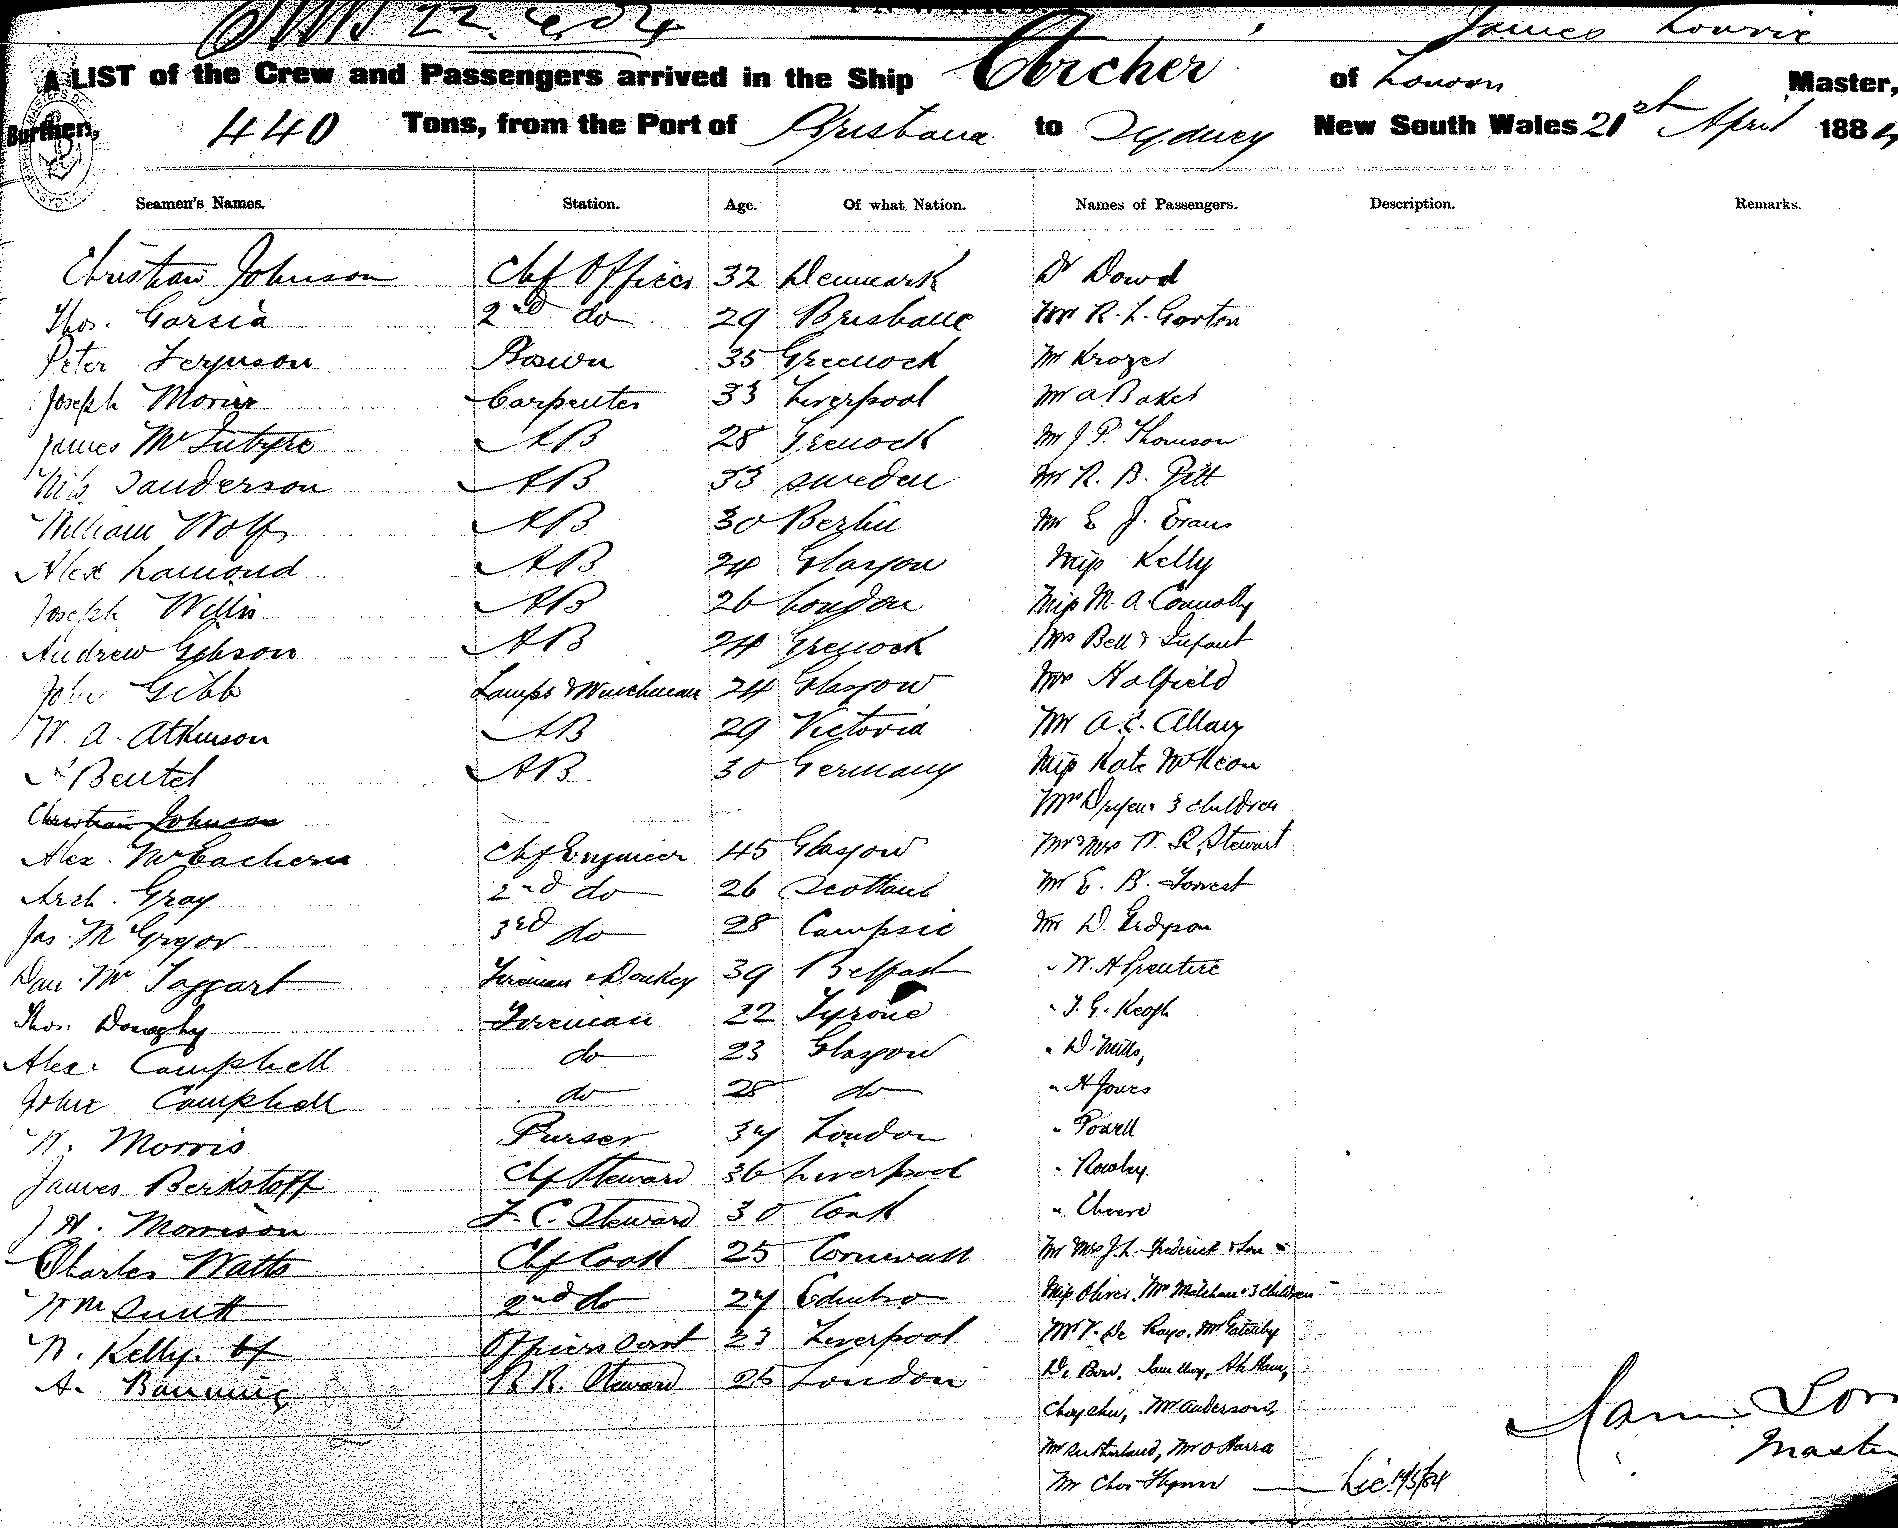 22.4.84
James Lowrie
A LIST of the Crew and Passengers arrived in the Ship Archer of London Master,
Burthen, 440 Tons, from the Port of Brisbane to Sydney New South Wales 21st April 1884
Seamen's Names. Station. Age. Of what Nation. Names of Passengers. Description. Remarks.
Christian Johnson Chf Officer 32 Denmark Dr Dowd
Thos. Garcia 2nd do 29 Brisbane Mr R. L. Gorton
Peter Ferguson Boswn 35 Greenock Mr
Joseph Carpenter 33 Liverpool Mr A Baker
James McIntyre AB 28 Grenock Mr J P. Thomson
Nils Sanderson AB 33 Sweden Mr R. B. Pitt
William Wolf AB 30 Berlin Mr E J. Evans
Alex Lamond AB 24 Glasgow Miss Kelly
Joseph Willis AB 26 London Miss M. A. Connolly
Andrew Gibson AB 24 Grenock Mrs Bell & Infant
John Gibb Lamps & Winchman 24 Glasgow Mr Halfield
W. A. Atkinson AB 29 Victoria Mr A. C. Allan
Beutel AB 30 Germany Miss Kate McKeon
Christian Johnson Mrs 3 children
Alex. McEachern Chf Engineer 45 Glasgow Mr & Mrs W. R. Stewart
Arch. Gray 2nd do 26 Scotland Mr E. B. Forrest
Jas. McGregor 3rd do 28 Campsie Mr D.
Dan. McTaggart Fireman & Donkey 39 Belfast " W. H
Thos. Donaghy Fireman 22 Tyrone " T. G. Keogh
Alex. Campbell do 23 Glasgow " D. Mills,
John Campbell do 28 do " H Jones
W. Morris Purser 34 London " Powell
James Berkstoff Chf Steward 36 Liverpool " Rowley
J H. Morrison F. C. Steward 30 Cork "
Charles Watts Chf Cook 25 Cornwall Mr Mrs J. L. Frederick & Son
Wm Smith 2nd do 27 Edinbro Miss Oliver. 3 children
W. Kelly. Officers Servt 23 Liverpool Mr V. De
A. Banning B. R. Steward 26 London
Mr Anderson,
Mr Sutherland, Mr O Harra
Mr Chas Lic
Master